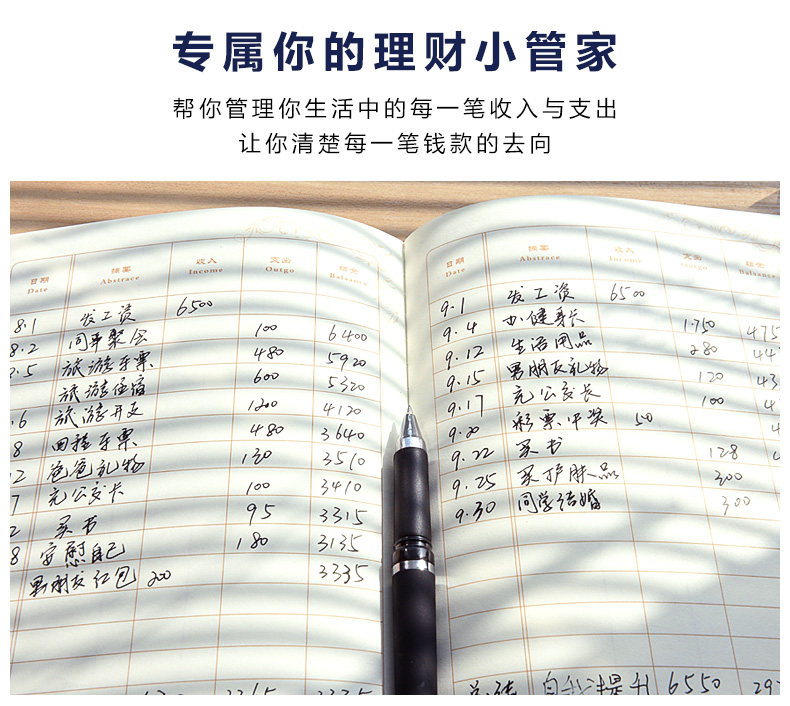 专属你的理财小管家
帮你管理你生活中的每一笔收入与支出
让你清楚每一笔钱款的去向
日期 摘要 收入 支出 结余
Date Abstrace Income Outgo Balaance
8.1 发工资 6500
8.2 同事聚会 100 6400
.5 旅游车票 480 5920
旅游住宿 600 5320
.6 旅游开支 1200 4120
8 回程车票 480 3640
2 爸爸礼物 130 3510
7 充公交卡 100 3410
2 买书 95 3315
8 安慰自己 180 3135
男朋友红包 200 3335
日期 摘要 收入 支出 结余
Date Abstrace Income Outgo Balaance
9.1 发工资 6500
9.4 办健身卡 1750 475
9.12 生活用品 280 44
9.15 男朋友礼物 120 43
9.17 充公交长 100 4
9.20 彩票中奖 50 4
9.22 买书 128
9.25 买护肤品 300
9.30 同学结婚 300
总结 自我提升 6550 29